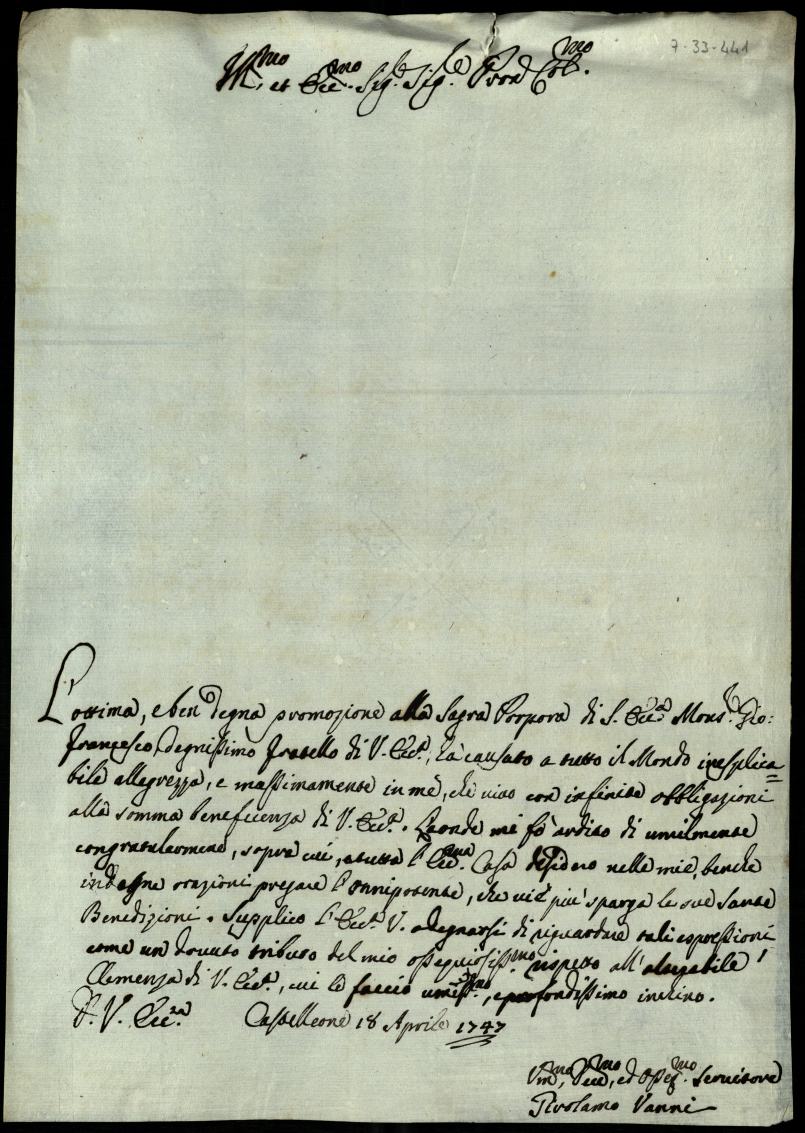 7-33-441
Ill.mo et Ecc.mo Sig.e Sig.e Pron Col.mo
L'ottima, e ben degna promozione alla Sagra Porpora di S. Ecc.a Mons.r Gio:
Francesco, degnissimo fratello di V. Ecc.a, hà causato a tutto il Mondo inesplica=
bile allegrezza, e massimamente in mè, che vivo con infinite obbligazioni
alla somma beneficenza di V. Ecc.a. Laonde mi fò ardito di umilmente
congratularmene, sopra cui, e tutta l'Ecc.ma Casa desidero nelle mie, benche
indegne orazioni pregare l'Onnipotente, che viè più sparga le sue Sante
Benedizioni. Supplico l'Ecc.a V. a degnarsi di riguardare tali espressioni
come un dovuto tributo del mio ossequiosiss.mo rispetto all'
Clemenza di V. Ecc.a, cui le faccio umiliss.mo, e profondissimo inchino.
D. V. Ecc.za Castelleone 18 Aprile 1747
Um.mo, Dev.mo, ed Osseq.mo Servitore
Girolamo Vanni